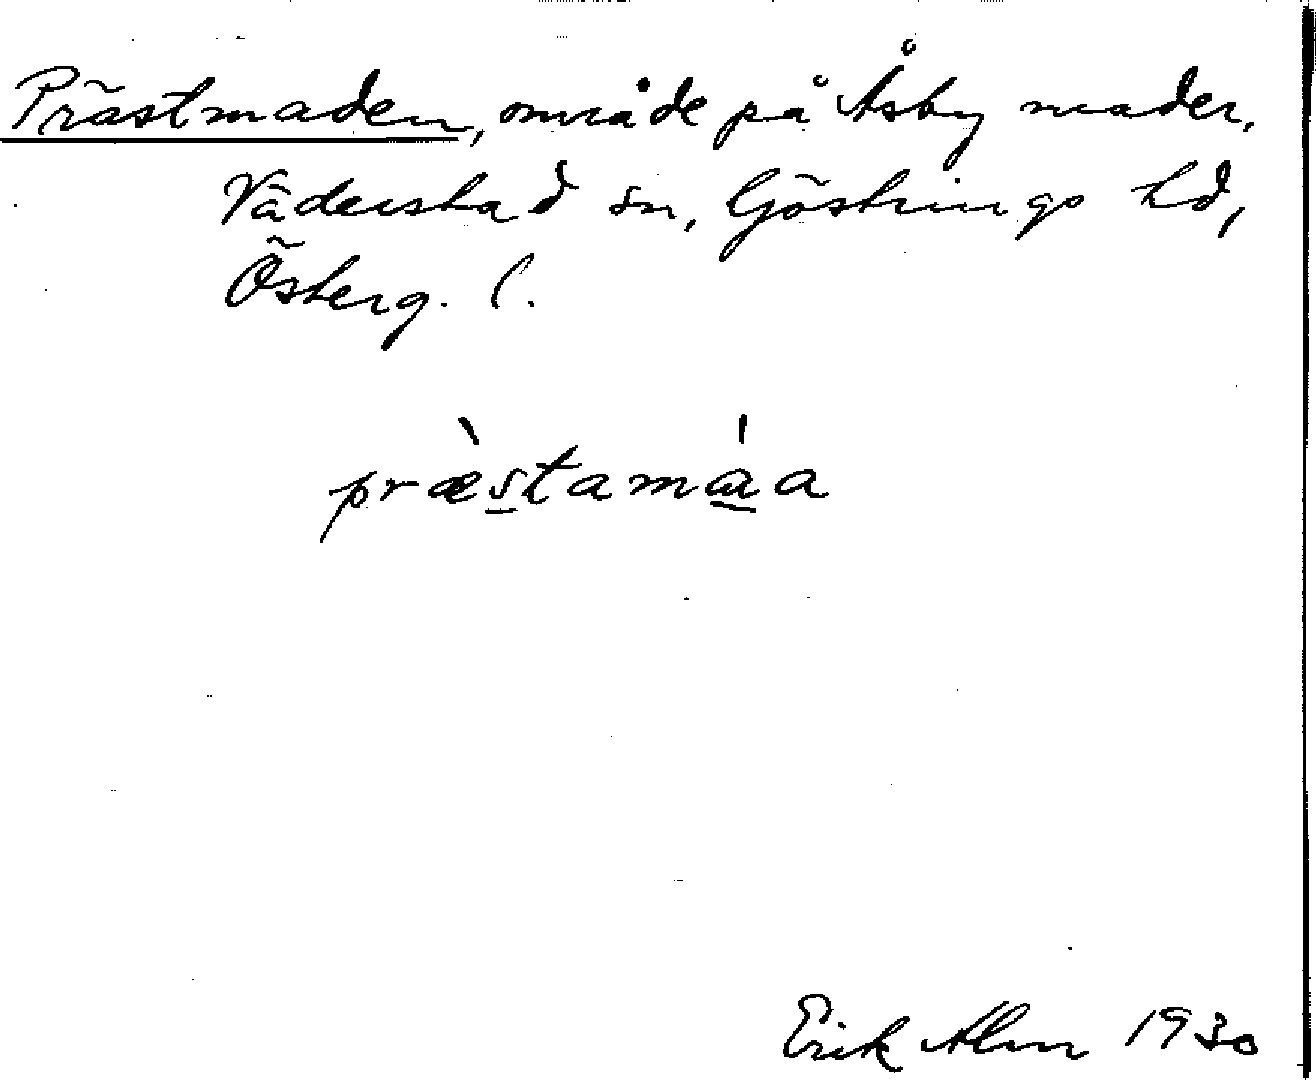 Prästmaden, område på Åsby mader,
Väderstad sn, Göstrings hd,
Österg. l.
præ̀stamáa
Erik Alm 1930